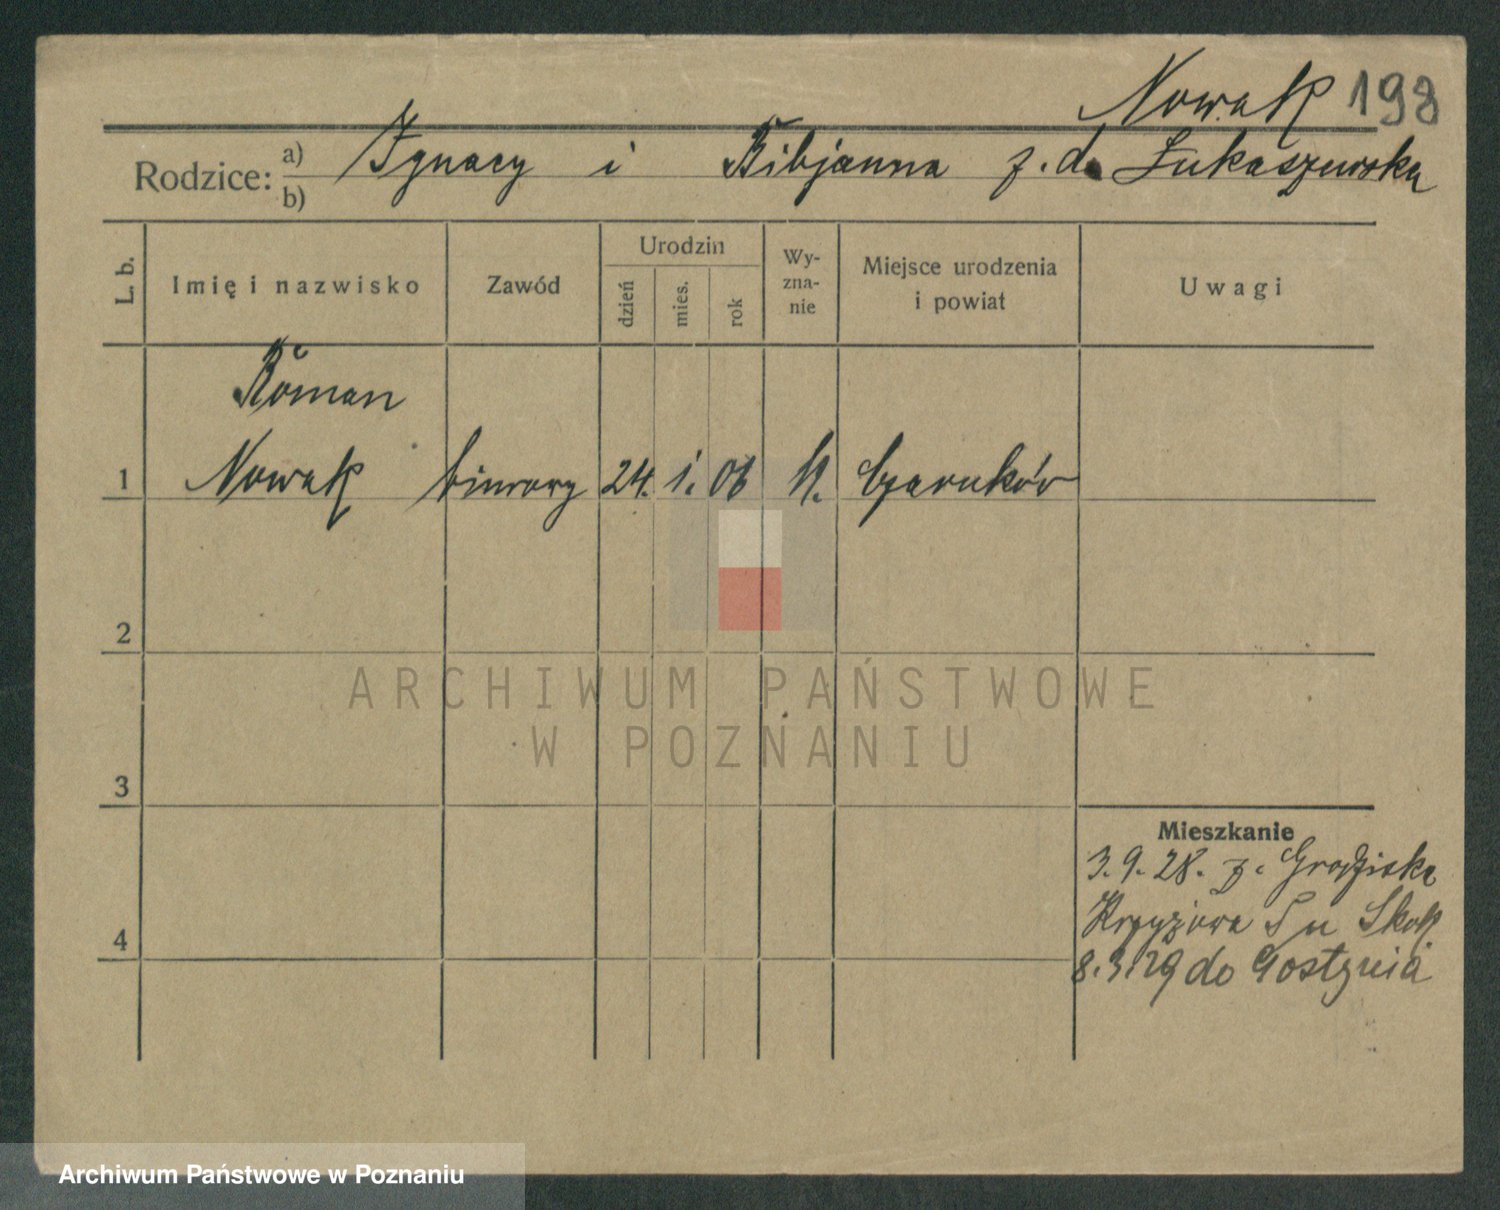 Nowak 198
Rodzice: a) Ignacy i Bibjanna z. d. Łukaszewska
b)
L. b.
Imię i nazwisko
Zawód
Urodzin
dzień
mies.
rok
Wy-
zna-
nie
Miejsce urodzenia
i powiat
Uwagi
Roman
1 Nowak biurowy 24. 1. 06 Czarnków
2
3
4
Mieszkanie
3. 9. 28. z. Grodziska
Krzyżowa 5 u Skok
8. 3. 29 do Gostynia
ARCHIWUM PAŃSTWOWE
W POZNANIU
Archiwum Państwowe w Poznaniu